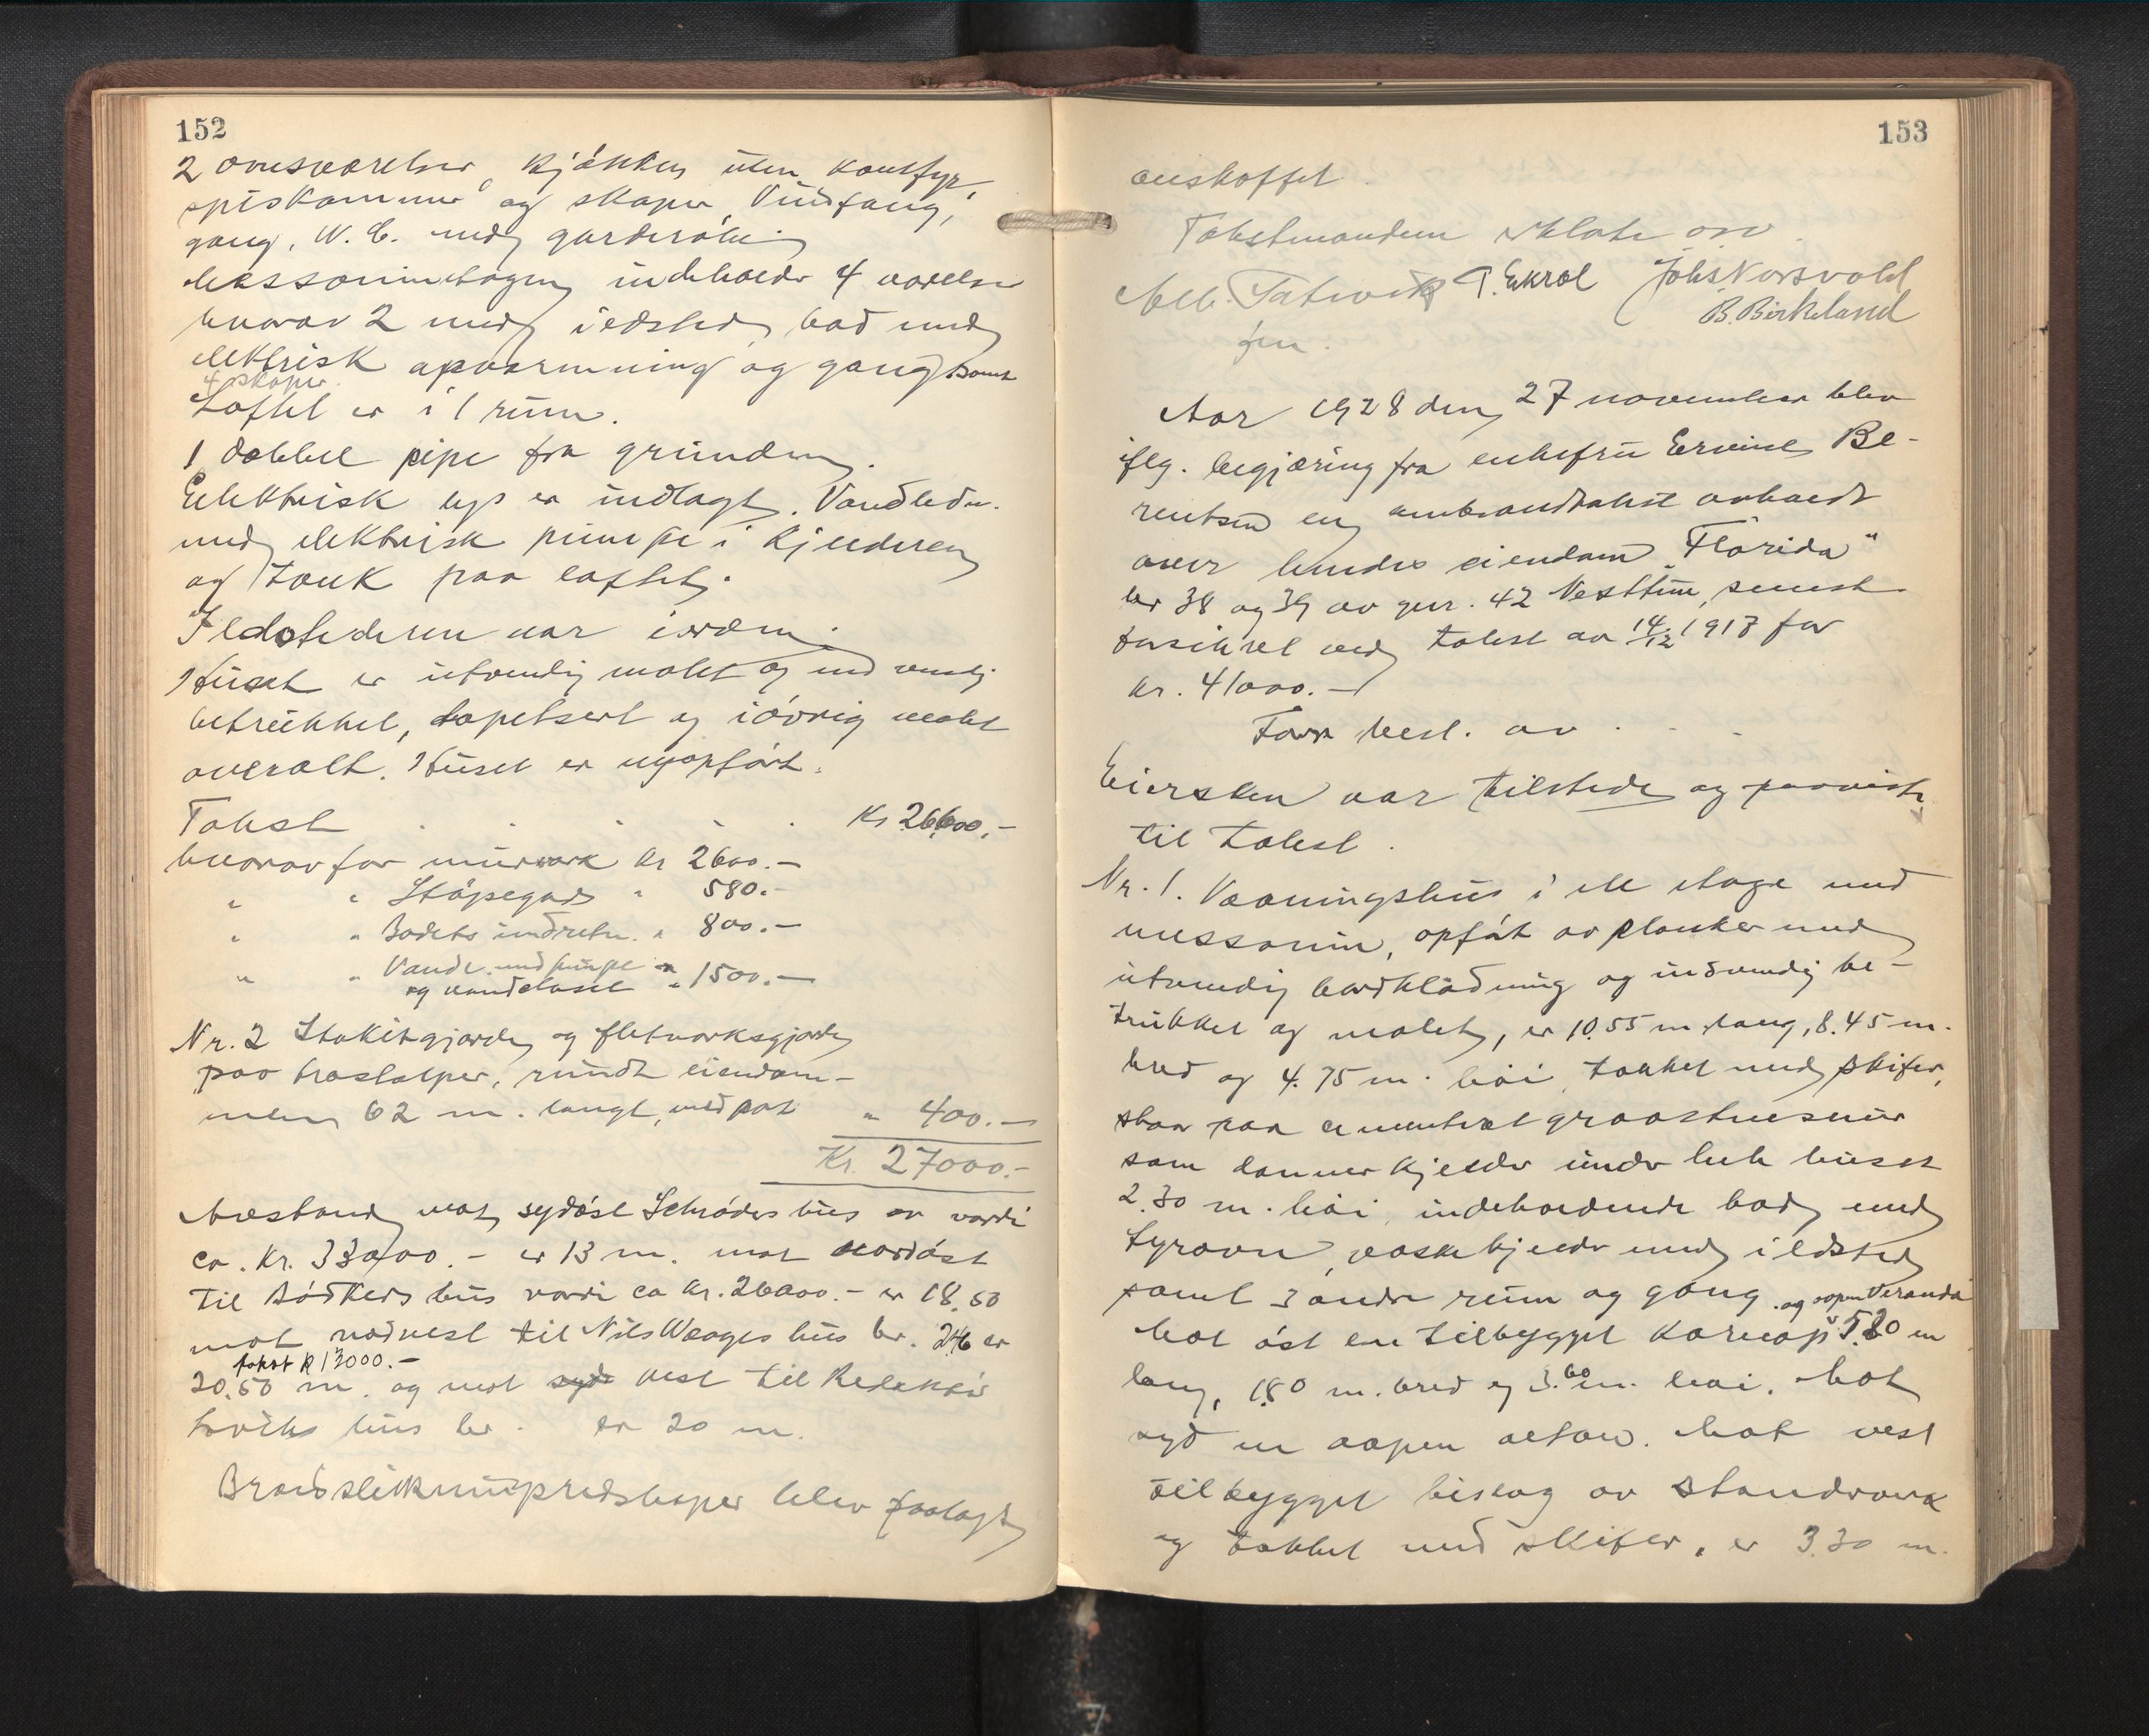 152
2 ovnsværelser, kjøkken uten komfyr,
spiskammer og skaper, Vindfang,
gang, W.C. med garderobe
Messaninetagen indeholder 4 værelser
hvorav 2 med ildsted, bad med
elektrisk opvarmning og gang samt
4 skaper.
Loftet er i 1 rum.
1 dobbel pipe fra grunden.
Elektrisk lys er indlagt. Vandledn.
med elektrisk pumpe i kjelderen
og tank paa loftet.
Ildstederne var iorden.
Huset er utvendig malet og indvendig
betrukket, tapetsert og iøvrig malet
overalt. Huset er nyopført.
Takst . . . . . Kr 26600.-
hvorav for murverk kr 2600.-
" " Støpegods " 580.-
" " Badets indretn. " 800.-
" " Vandl. med pumpe
og vandcloset " 1500.-
Nr. 2 Stakitgjerde og fletverksgjerde
paa træstolper, rundt eiendom-
men 62 m. langt, med port " 400.-
Kr. 27000.-
Avstand mot sydøst Schrøders hus av værdi
ca. Kr. 33000.- er 13 m. mot nordøst
til Bødkers hus værdi ca kr. 26000.- er 18.50
mot nordvest til Nils Waages hus br. 246 er
takst k 12000.-
20.50 m. og mot syd vest til Redaktør
hus br. er 20 m.
Brandslukningsredskaper blev paalagt
153
anskaffet.
Takstmandene avla osv.
Alb. Tatwik T. Ekrol Johs Norsvold
B. Birkeland
fm.
Aar 1928 den 27 november blev
iflg. begjæring fra enkefru Be-
rentsen en ombrandtakst avholdt
over hendes eiendom "Florida"
br 38 og 39 av gnr. 42 Vesttun, senest
forsikret ved takst av 14/12 1917 for
kr. 41000.-
Forr. best. av . . -
Eiersken var tilstede og paaviste
til takst.
Nr. 1. Vaaningshus i en etage med
messanin, opført av planker med
utvendig bordklædning og indvendig be-
trukket og malet, er 10.55 m. lang, 8.45 m.
bred og 4.75 m. høi, tækket med skifer,
staar paa cementert graastensmur
som danner kjelder under hele huset
2.30 m. høi, indeholdende bad med
fyrovn, vaskekjelder med ildsted
samt 3 andre rum og gang. og aapen Veranda
Mot øst en tilbygget karnap 5.80 m
lang, 1.80 m. bred og 3.60 m. høi. Mot
syd en aapen altan. Mot vest
tilbygget bislag av standverk
og tækket med skifer, er 3.30 m.